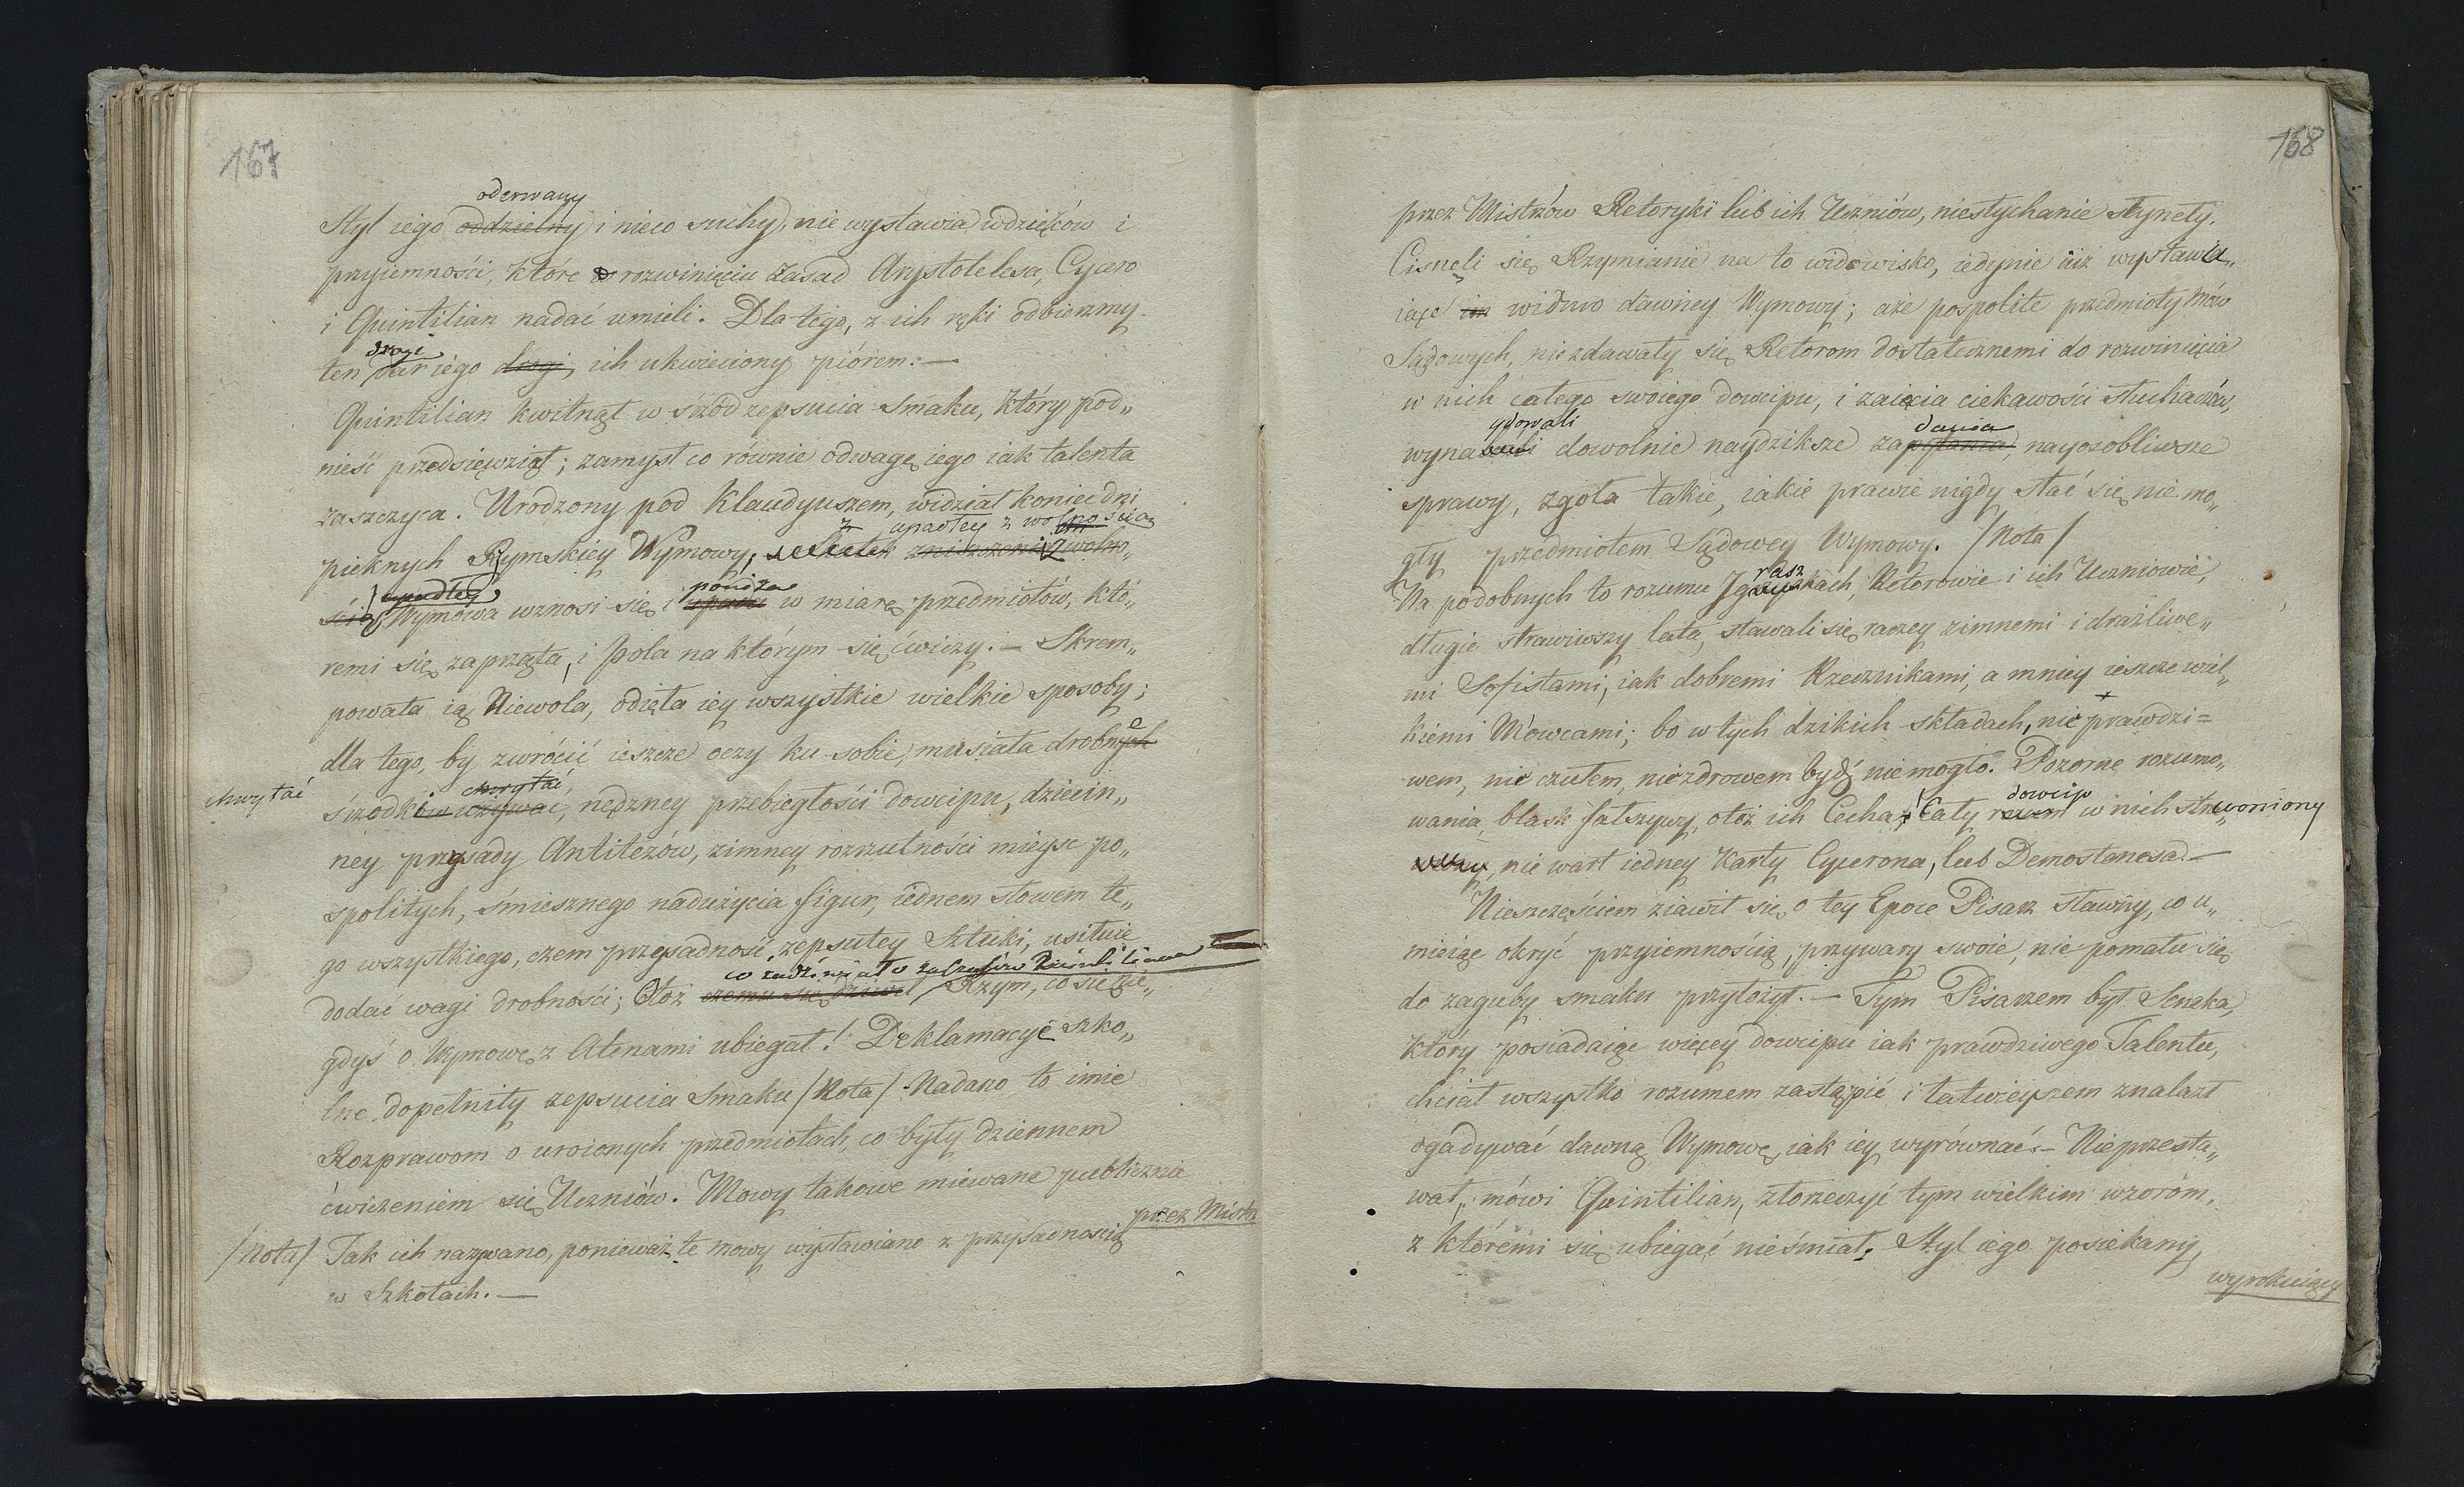 167
oderwany
Styl iego oddzielny i nieco suchy, nie wystawia wdzięków i
przyiemności, które w rozwinięciu zasad Arystotelesa, Cycero
i Quintilian nadać umieli. Dla tego, z ich ręki odbierzmy
drogi
ten dar iego drogi, ich ukwiecony piórem. —
Quintilian kwitnął w śrzód zepsucia smaku, który pod„
nieść przedsięwziął; zamysł co równie odwagę iego iak talenta
zaszczyca. Urodzony pod Klaudyuszem, widział koniec dni
z upadłey z wolnością
pieknych Rzymskiey Wymowy, zniszczoney z wolno„
upadłey
ścią Wymowa wznosi się i w miarę przedmiotów, któ„
poniża
remi się zaprząta, i pola na którym się ćwiczy. — Skrem„
powała ią Niewola, odięła iey wszystkie wielkie sposoby;
dla tego, by zwrócić ieszcze oczy ku sobie, musiała drobnych
e
chwytać
chwytać,
śrzodków używać, nędzney przebiegłości dowcipu, dziecin„
ney przysady Antitezów, zimney rozrzutności mieysc po„
spolitych, śmiesznego nadużycia figur, iednem słowem te„
go wszystkiego, czem przesadność zepsutey Sztuki, usiłuie
co zadziwiał za czasów Kwintiliana
dodać wagi drobności; Otoż czemu się dziwił Rzym, co się kie„
gdyś o Wymowę z Atenami ubiegał! Deklamacye szko„
lne dopełniły zepsucia smaku /Nota/ Nadano to imie
Rozprawom o uroionych przedmiotach, co były dziennem
ćwiczeniem się Uczniów. Mowy takowe miewane publicznie
przez Mistrz
/Nota/ Tak ich nazwano, ponieważ te mowy wystawiano z przysadnością
w Szkołach. —
168
przez Mistrzów Retoryki lub ich Uczniów, niesłychanie słynęły.
Cisnęli się Rzymianie na to widowisko, iedynie iuż wystawia„
iące im widmo dawney Wymowy; aże pospolite przedmioty mów
Sądowych, nie zdawały się Retorom dostatecznemi do rozwinięcia
w nich całego swoiego dowcipu, i zaięcia ciekawości słuchaczów,
ydowali dania
wyna dowolnie naydziksze zapytania, nayosobliwsze
sprawy, zgoła takie, iakie prawie nigdy stać się nie mo„
gły przedmiotem Sądowey Wymowy. /Nota/
rasz
Na podobnych to rozumu Igrzyskach, Retorowie i ich Uczniowie,
długie strawiwszy lata, stawali się raczey zimnemi i drażliwe„
mi Sofistami, iak dobremi Rzecznikami, a mniey ieszcze wiel„
kiemi Mówcami; bo w tych dzikich składach, nic prawdzi=
wem, nic czułem, nic zdrowem bydź nie mogło. Pozorne rozumo„
dowcip
wania, blask fałszywy, otóż ich Cecha; Cały rozum w nich strwoniony
nie wart iedney karty Cycerona, lub Demostenesa. —
Nieszczęściem ziawił się o tey Epoce Pisarz sławny, co u„
mieiąc okryć przyiemnością, przywary swoie, nie pomału się
do zaguby smaku przyłożył. — Tym Pisarzem był Seneka,
który posiadaiąc więcey dowcipu iak prawdziwego Talentu,
chciał wszystko rozumem zastąpić i łatwieyszem znalazł
ogadywać dawną Wymowę, iak iey wyrównać. — Nieprzesta„
wał, mówi Quintilian, złorzeczyć tym wielkim wzorom,
z któremi się ubiegać nieśmiał. Styl iego posiekany,